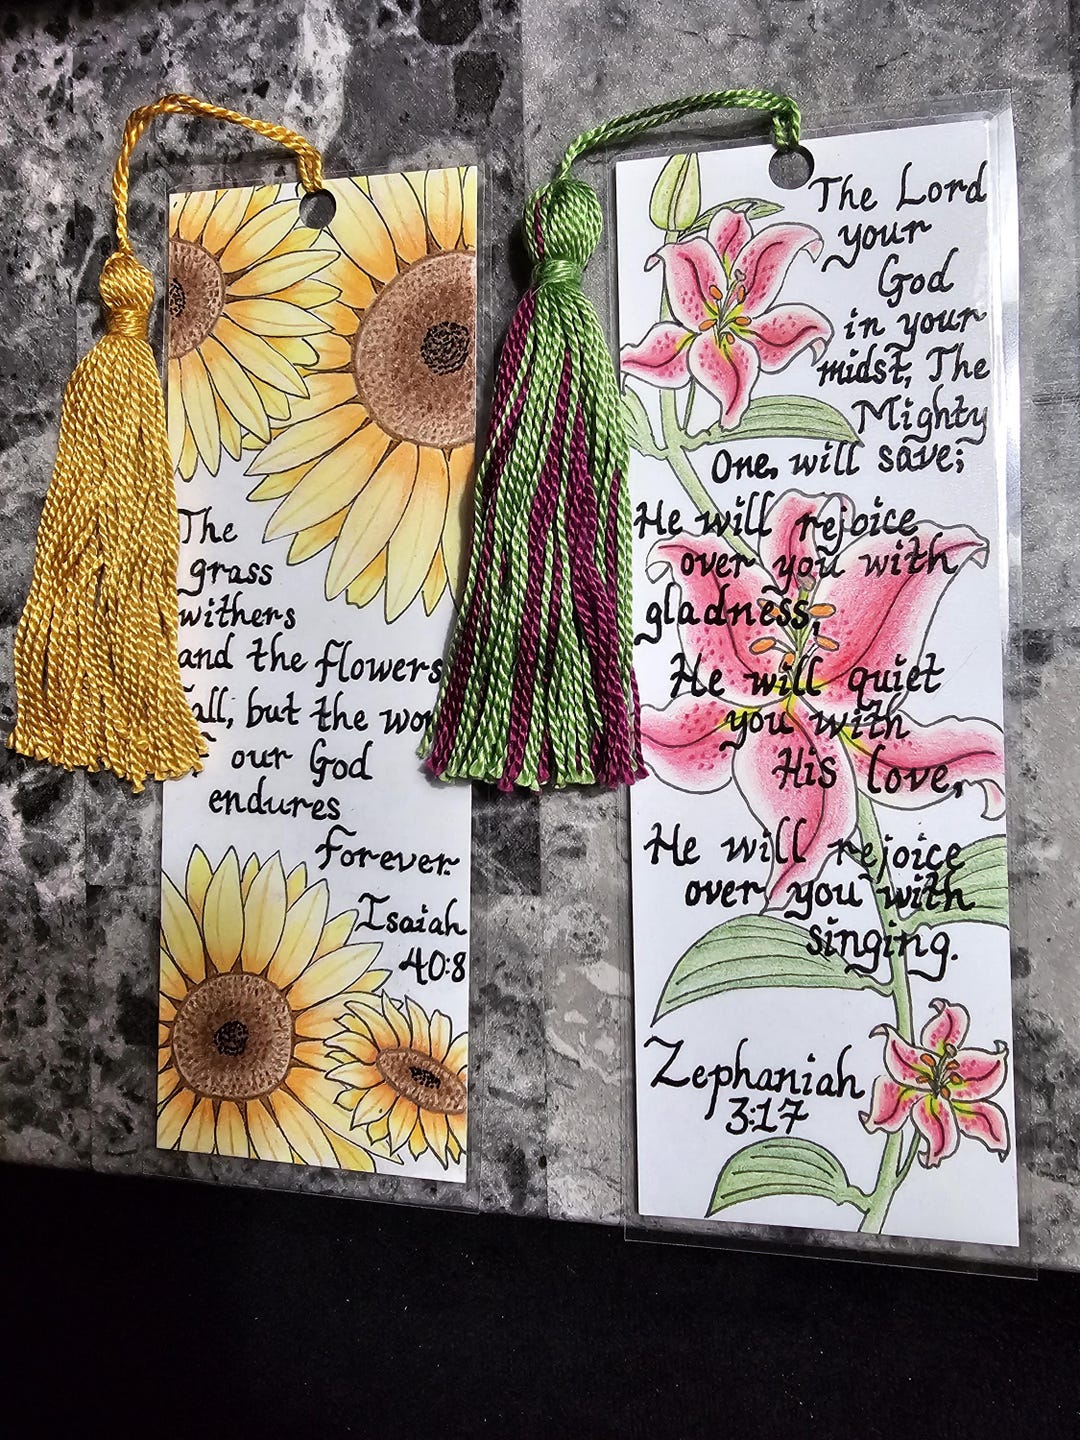 The
grass
withers
and the flowers
all, but the wor
our God
endures
forever.
Isaiah
40:8
The Lord
your
God
in your
midst, The
Mighty
One, will save;
He will rejoice
over you with
gladness,
He will quiet
you with
His love,
He will rejoice
over you with
singing.
Zephaniah
3:17